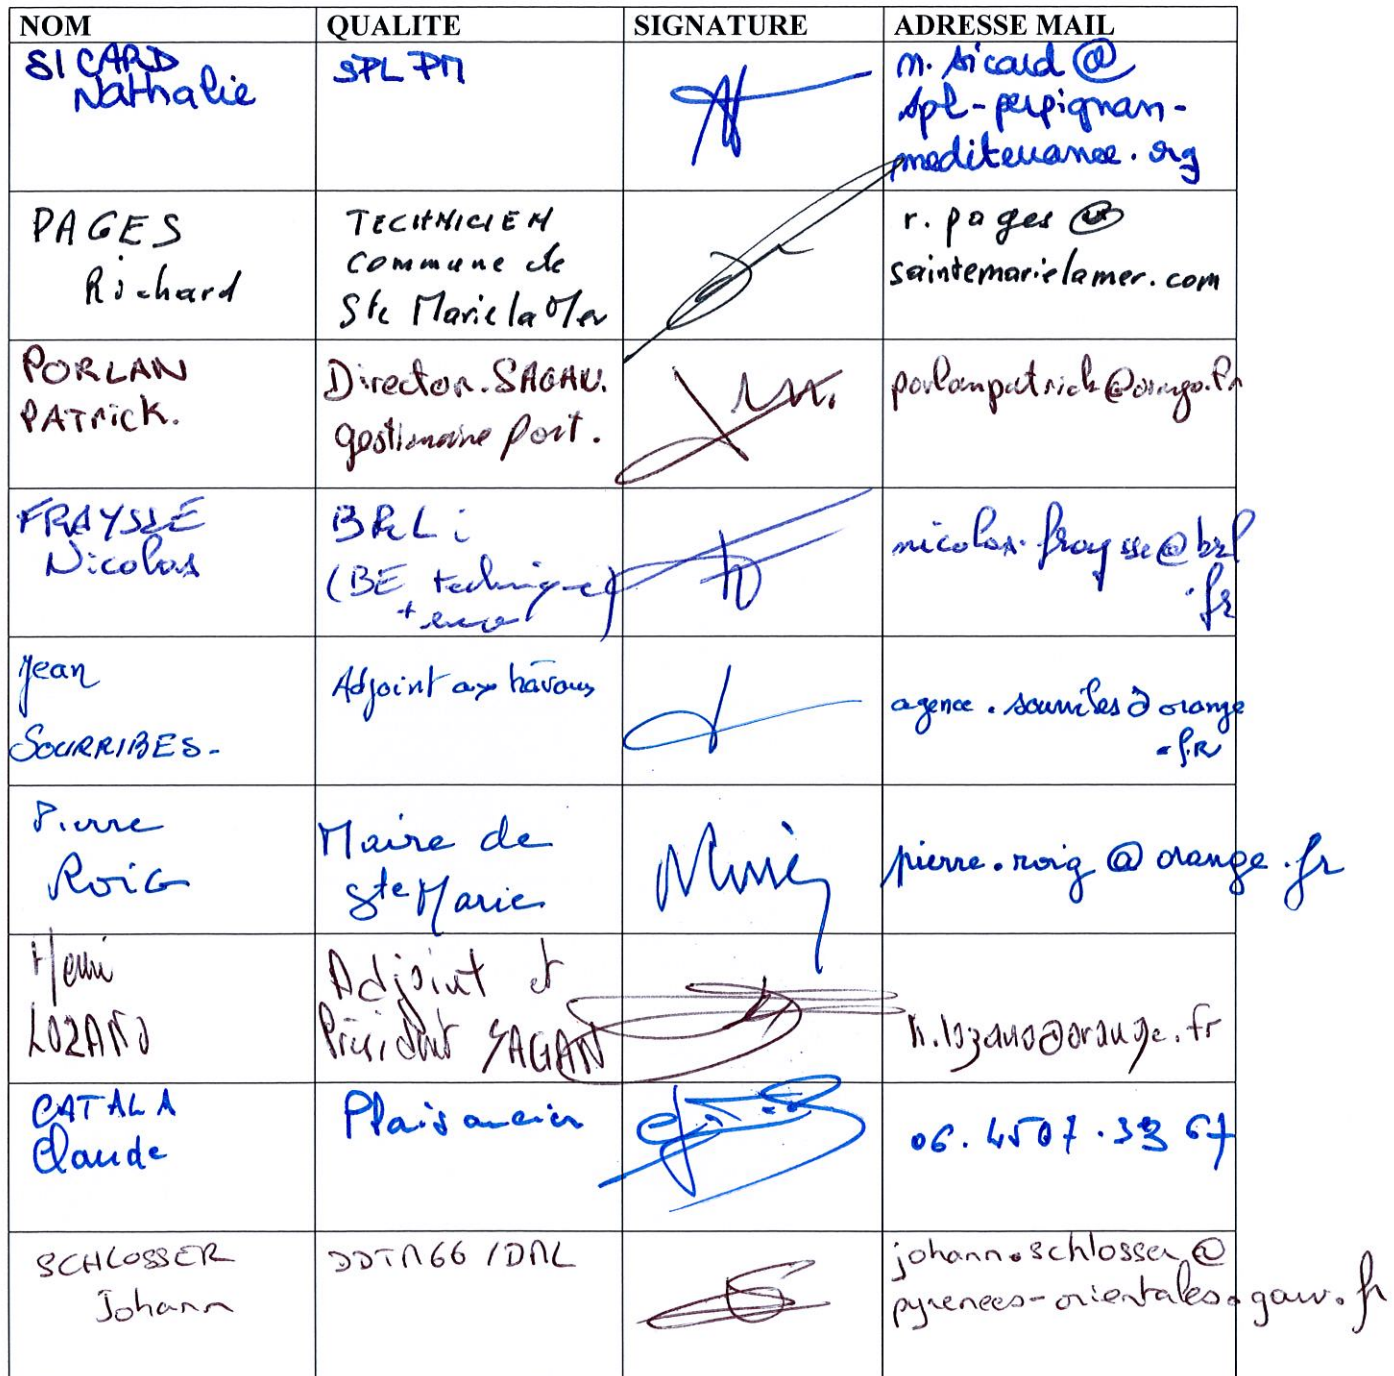 NOM QUALITE SIGNATURE ADRESSE MAIL
SICARD
Nathalie
SPL PM
n.sicard @
spl-perpignan-
mediterranee.org
PAGES
Richard
TECHNICIEN
commune de
Ste Marie la Mer
r.pages @
saintemarielamer.com
PORLAN
PATRICK.
Director. SAGAN.
gestionnaire Port.
porlanpatrick@orange.fr
FRAYSSE
Nicolas
BRLi
(BE technique
+ enviro)
nicolas.fraysse@brl
.fr
Jean
SOURRIBES-
Adjoint aux travaux
agence.sourribes@orange
.fr
Pierre
Roig
Maire de
Ste Marie
pierre.roig @ orange.fr
Henri
LOZANO
Adjoint et
Président SAGAN
h.lozano@orange.fr
CATALA
Claude
Plaisancier
06.4507.33 67
SCHLOSSER
Johann
DDTM66 /DML
johann.schlosser@
pyrenees-orientales.gouv.fr